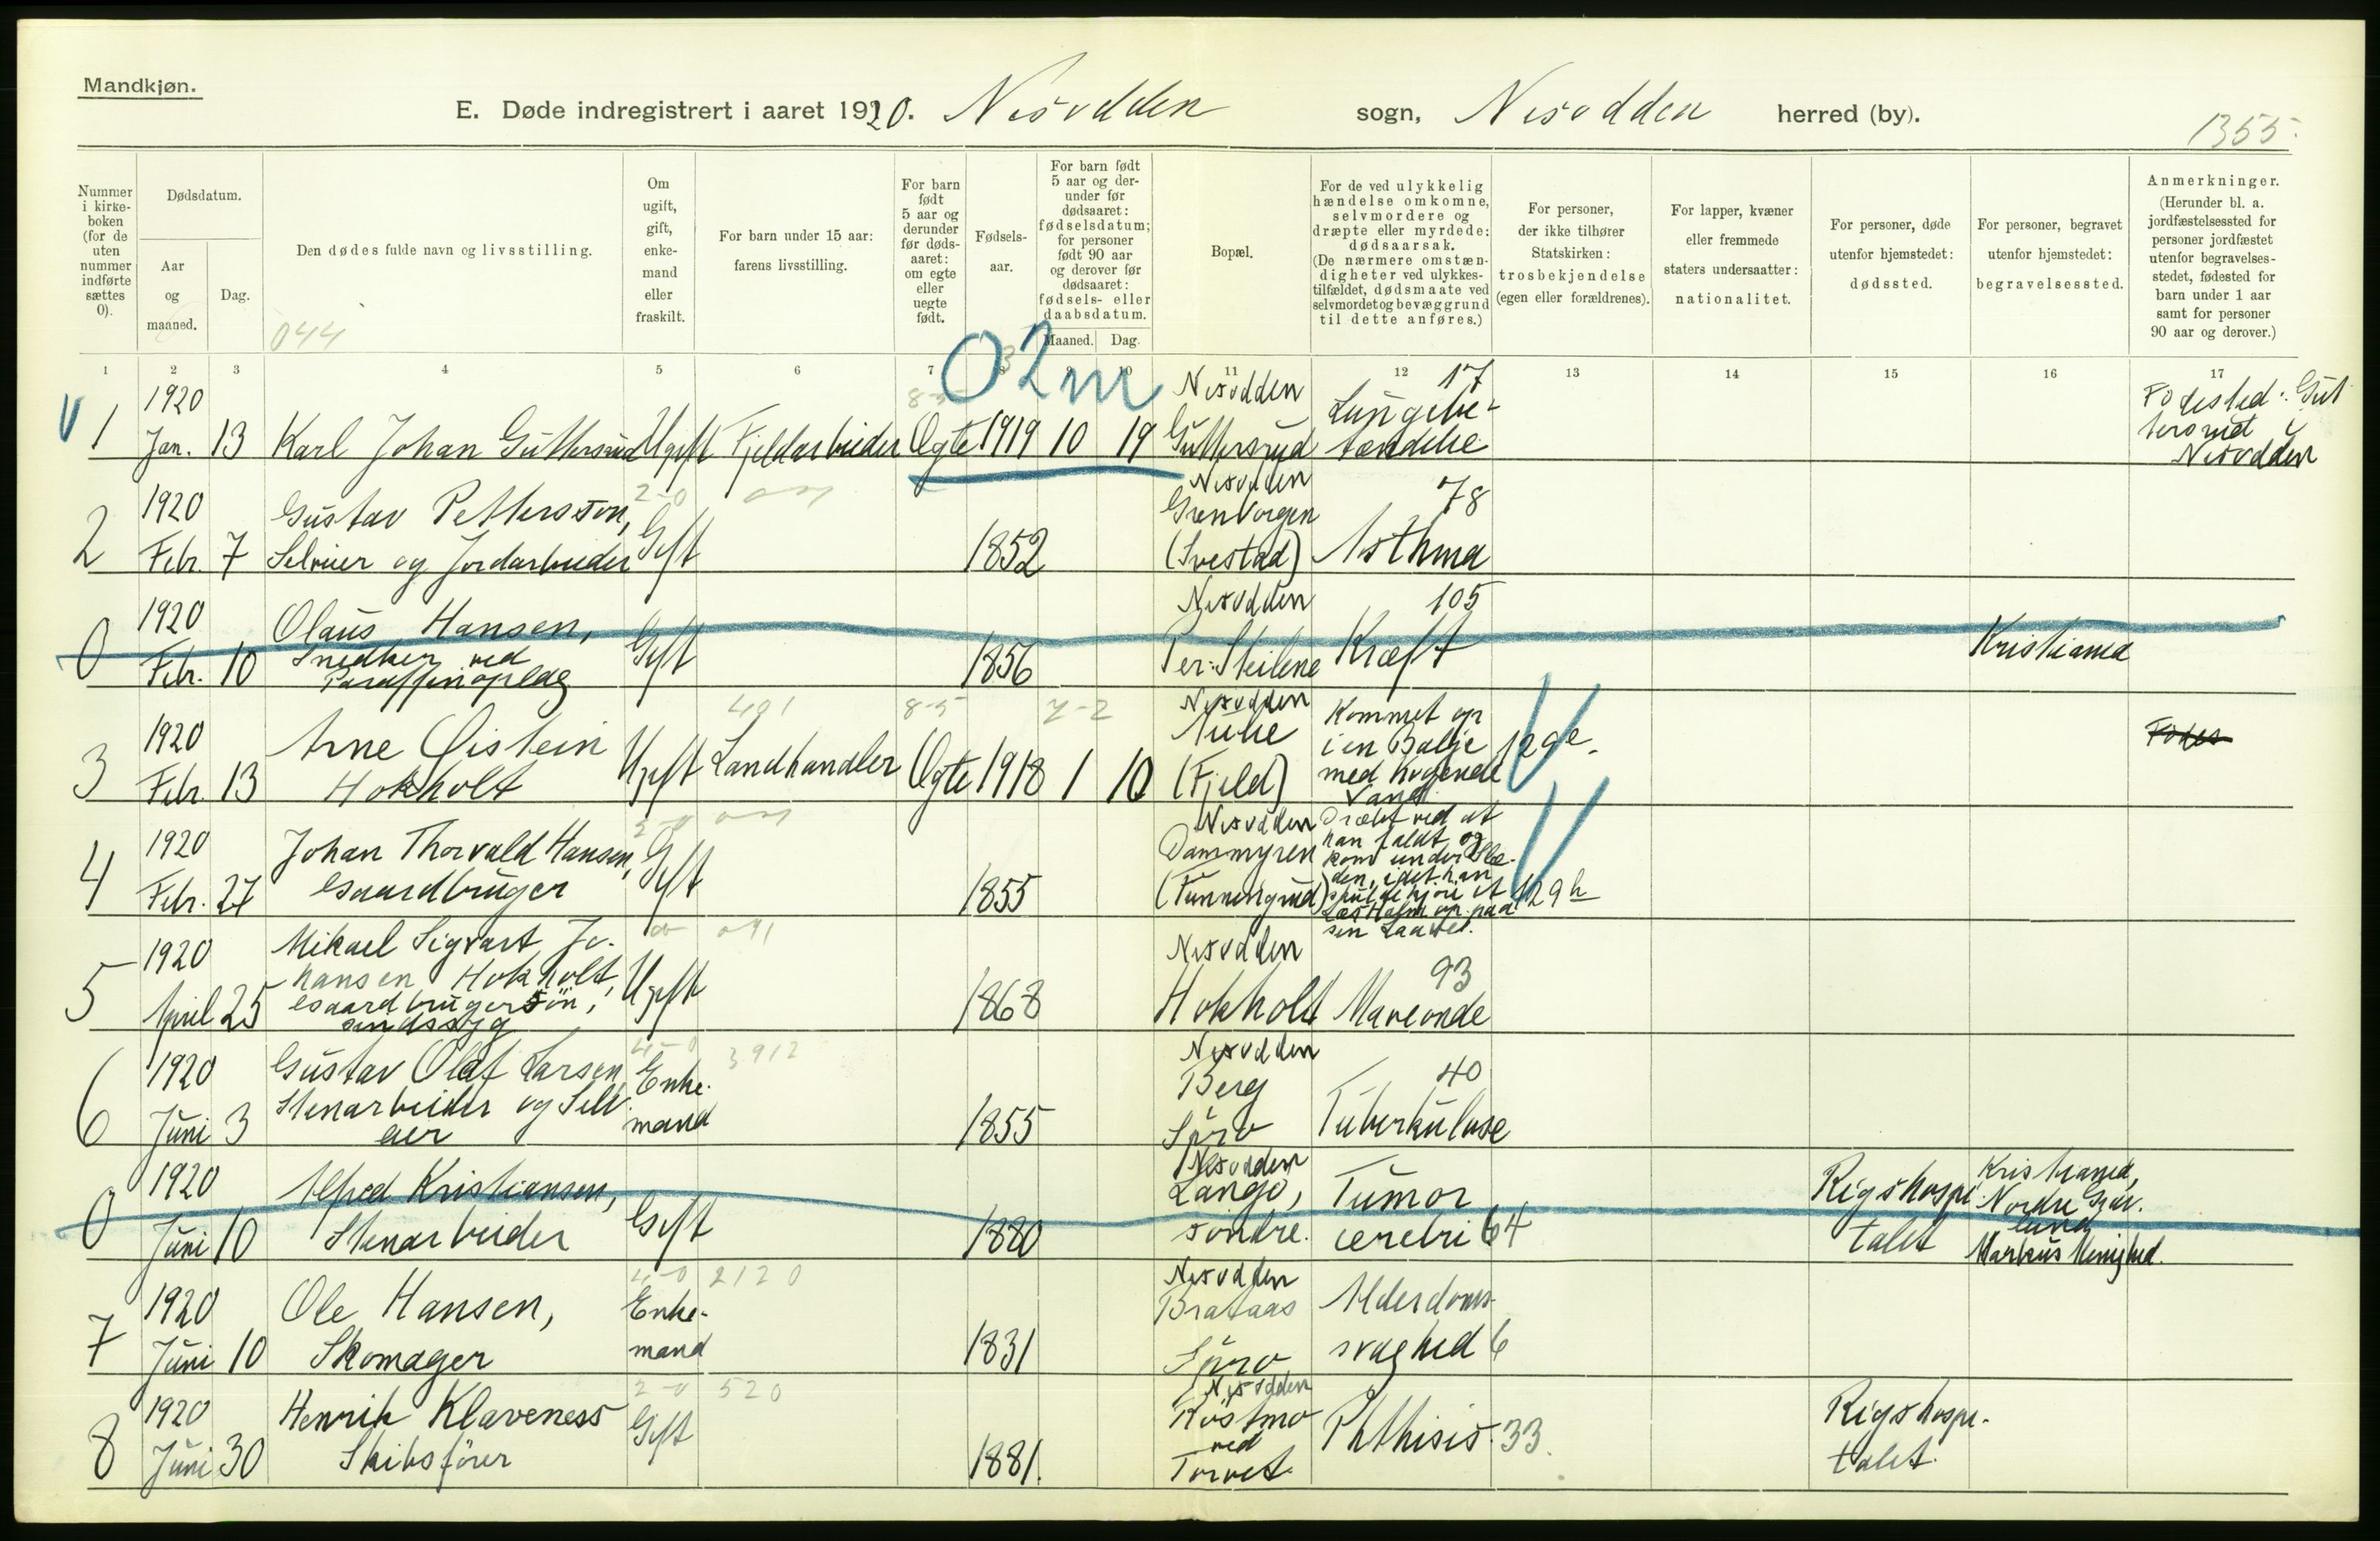 Mandkjøn.
E. Døde indregistrert i aaret 1920. Nesodden sogn, Nesodden herred (by).
1355.
Nummer i kirke-boken (for de uten nummer indførte sættes 0).
Dødsdatum.
Aar og maaned.
Dag.
Den dødes fulde navn og livsstilling.
044
Om ugift, gift, enke-mand eller fraskilt.
For barn under 15 aar: farens livsstilling.
For barn født 5 aar og derunder før døds-aaret: om egte eller uegte født.
Fødsels-aar.
For barn født 5 aar og der-under før dødsaaret: fødselsdatum; for personer født 90 aar og derover før dødsaaret: fødsels- eller daabsdatum.
Maaned. Dag.
Bopæl.
For de ved ulykkelig hændelse omkomne, selvmordere og dræpte eller myrdede: dødsaarsak. (De nærmere omstæn-digheter ved ulykkes-tilfældet, dødsmaate ved selvmordet og bevæggrund til dette anføres.)
For personer, der ikke tilhører Statskirken: trosbekjendelse (egen eller forældrenes).
For lapper, kvæner eller fremmede staters undersaatter: nationalitet.
For personer, døde utenfor hjemstedet: dødssted.
For personer, begravet utenfor hjemstedet: begravelsessted.
Anmerkninger. (Herunder bl. a. jordfæstelsessted for personer jordfæstet utenfor begravelses-stedet, fødested for barn under 1 aar samt for personer 90 aar og derover.)
1 2 3 4 5 6 7 8 9 10 11 12 13 14 15 16 17
02m
1 1920 Jan. 13 Karl Johan Guttersrud Ugift Fjeldarbeider Ægte 1919 10 19 Nesodden Guttersrud 17 Lungebe-tændelse Fødested: Guttersrud i Nesodden
2 1920 Febr. 7 Gustav Pettersson, Selveier og Jordarbeider 2-0 Gift 1852 Nesodden (Svestad) 78 Asthma
0 1920 Febr. 10 Olaus Hansen, Snedker ved Paraffinoplag Gift 1856 Nesodden Per: Steilene 105 Kræft Kristiania
3 1920 Febr. 13 Arne Øistein Hokholt Ugift 401 Landhandler 8-5 Ægte 1918 1 10 Nesodden (Fjeld) Kommet op i en Balje med kogende Vand 129e. Fødes
4 1920 Febr. 27 Johan Thorvald Hansen, Gaardbruger 2-0 Gift 1855 Nesodden Dammyren Dræbt ved at han faldt og kom under Slæ-den, idet han skulde kjøre et Læs Halm op paa sin Laavel. 129h
5 1920 April 25 Mikael Sigvart Jo-hansen Hokholt, Gaardbrugersøn, sindssyg Ugift 1868 Nesodden Hokholt 93 Maveonde
6 1920 Juni 3 Gustav Olaf Larsen Stenarbeider og Selv-eier 4-0 3912 Enke-mand 1855 Nesodden Berg Spro 40 Tuberkulose
0 1920 Juni 10 Alfred Kristiansen, Stenarbeider Gift 1880 Nesodden Langø, søndre. Tumor cerebri 64 Rigshospi-talet Kristiania, Nordre Grav-lund Markus Menighed.
7 1920 Juni 10 Ole Hansen, Skomager 4-0 2120 Enke-mand 1831 Nesodden Brataas Spro Alderdoms-svaghed 6
8 1920 Juni 30 Henrik Klaveness Skibsfører 2-0 520 Gift 1881. Nesodden Røstmo ved Torvet. Phthisis. 33. Rigshospi-talet.